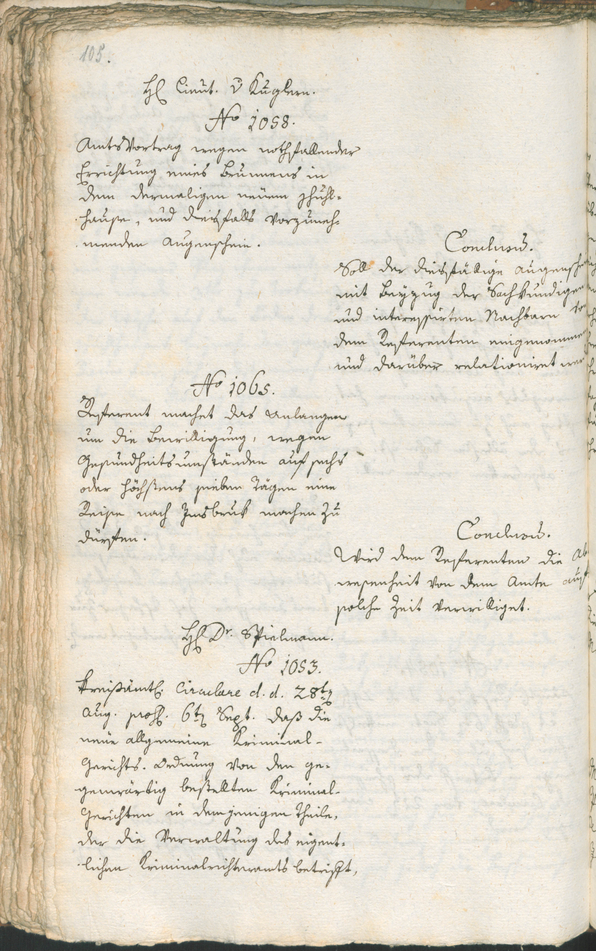 105.
H Lieut. v Kuglern.
No 1058.
Amtsvortrag wegen nothfallender
Errichtung eines Brunnens in
dem dermaligen neuen Schuhl-
hause, und diesfalls vorzuneh-
menden Augenschein.
Conclusū.
Soll der diesfällige Augensch
mit Beyzug der Sachkundigen
und interessirten Nachbarn
dem Referenten eingenommen
und darüber relationiret
No 1065.
Referent machet das Anlangen
um die Bewilligung, wegen
Gesundheitsumständen auf sechs
oder höchstens sieben Tägen eine
Reise nach Insbruk machen zu
dürfen.
Conclusū.
Wird dem Referenten die Ab
wesenheit von dem Amte auf
solche Zeit verwilliget.
H Dr. Spielmann.
No 1053.
Kreisämtl. Circulare d. d. 28t
Aug. 6t Sept. daß die
neue allgemeine Kriminal-
Gerichts-Ordnung von den ge-
genwärtig bestellten Kriminal-
Gerichten in demjenigen Theile,
der die Verwaltung des eigent-
lichen Kriminalrichteramts betrifft,